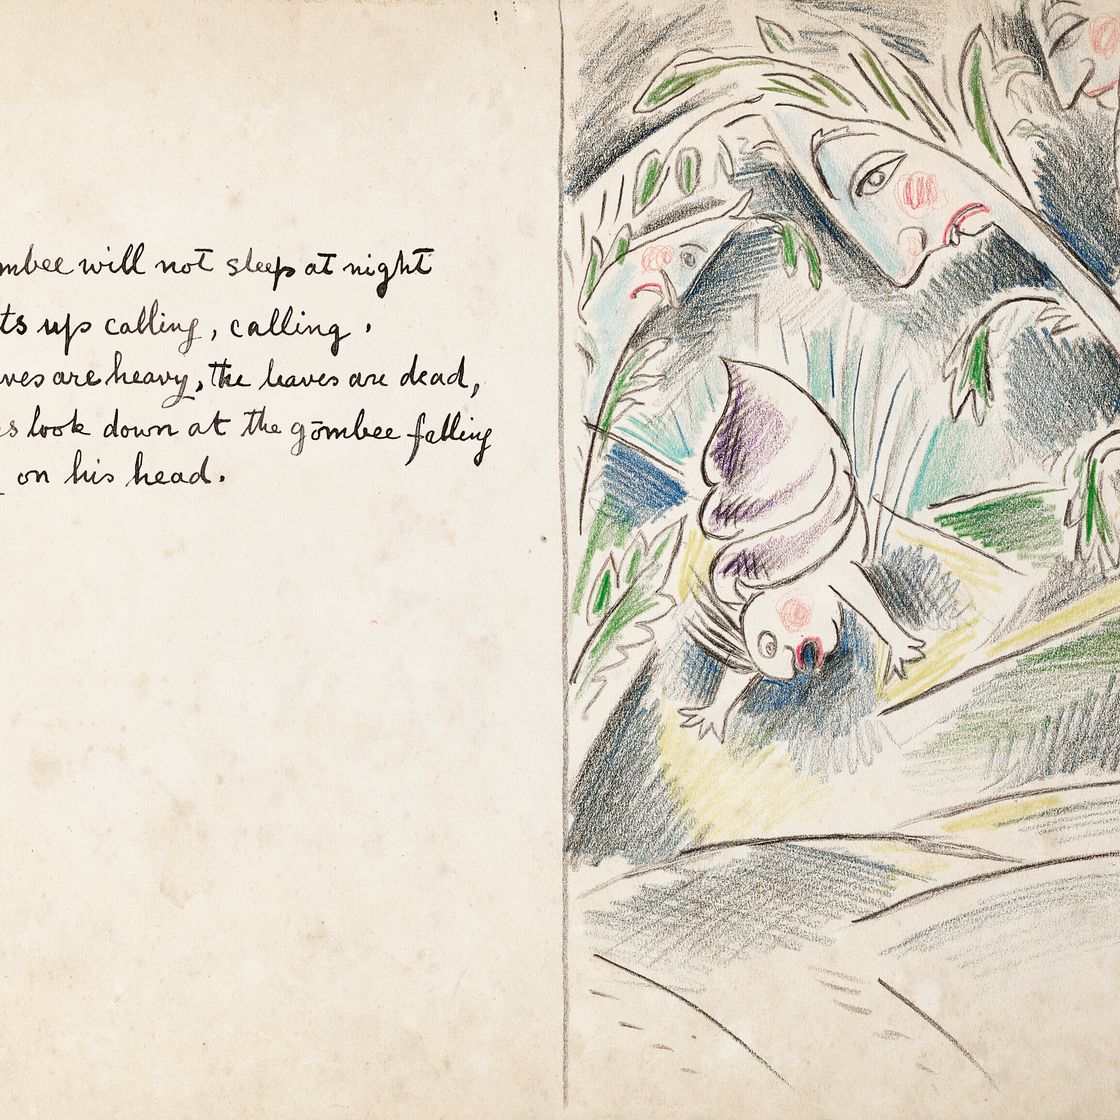 mbee will not sleep at night
ts up calling, calling.
ves are heavy, the leaves are dead,
s look down at the gōmbee falling
on his head.